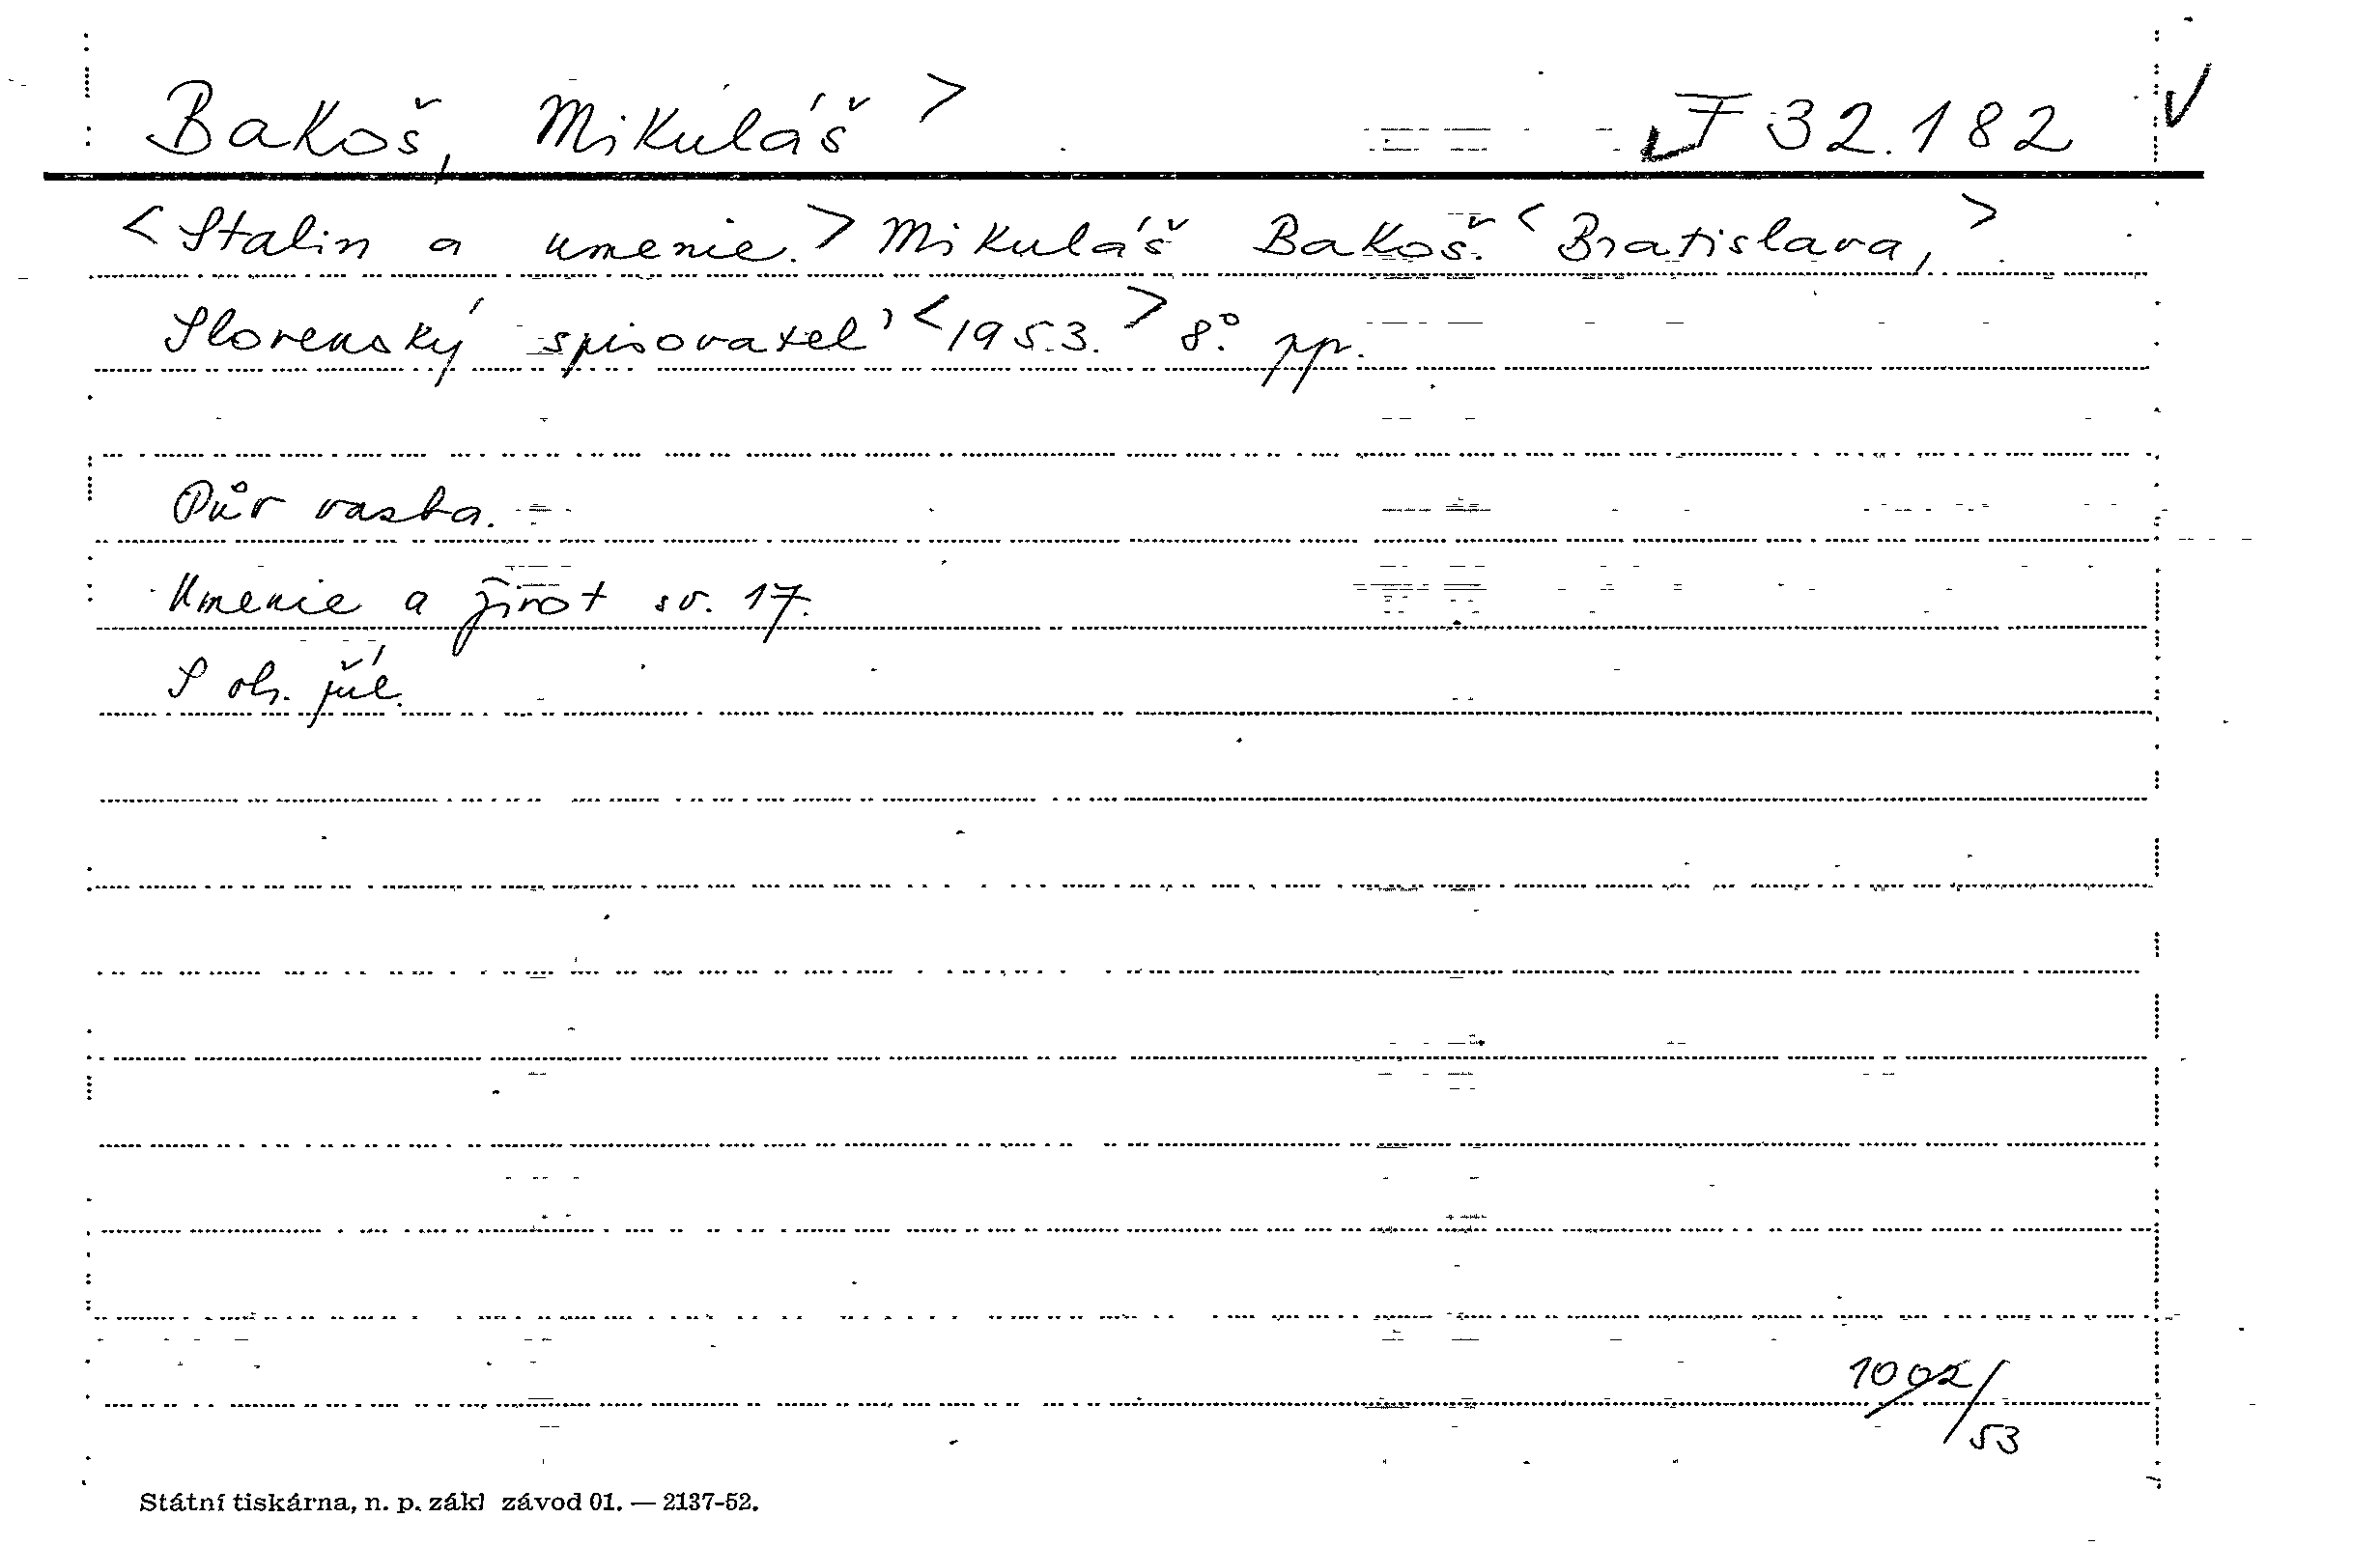 Bakoš, Mikuláš > F 32.182 ✓
<Stalin a umenie.> Mikuláš Bakoš. <Bratislava,>
Slovenský spisovateľ <1953.> 8° pp.
Pův vazba.
Umenie a život sv. 17.
S ob. příl.
1002/53
Státní tiskárna, n. p. zákl závod 01. — 2137-52.